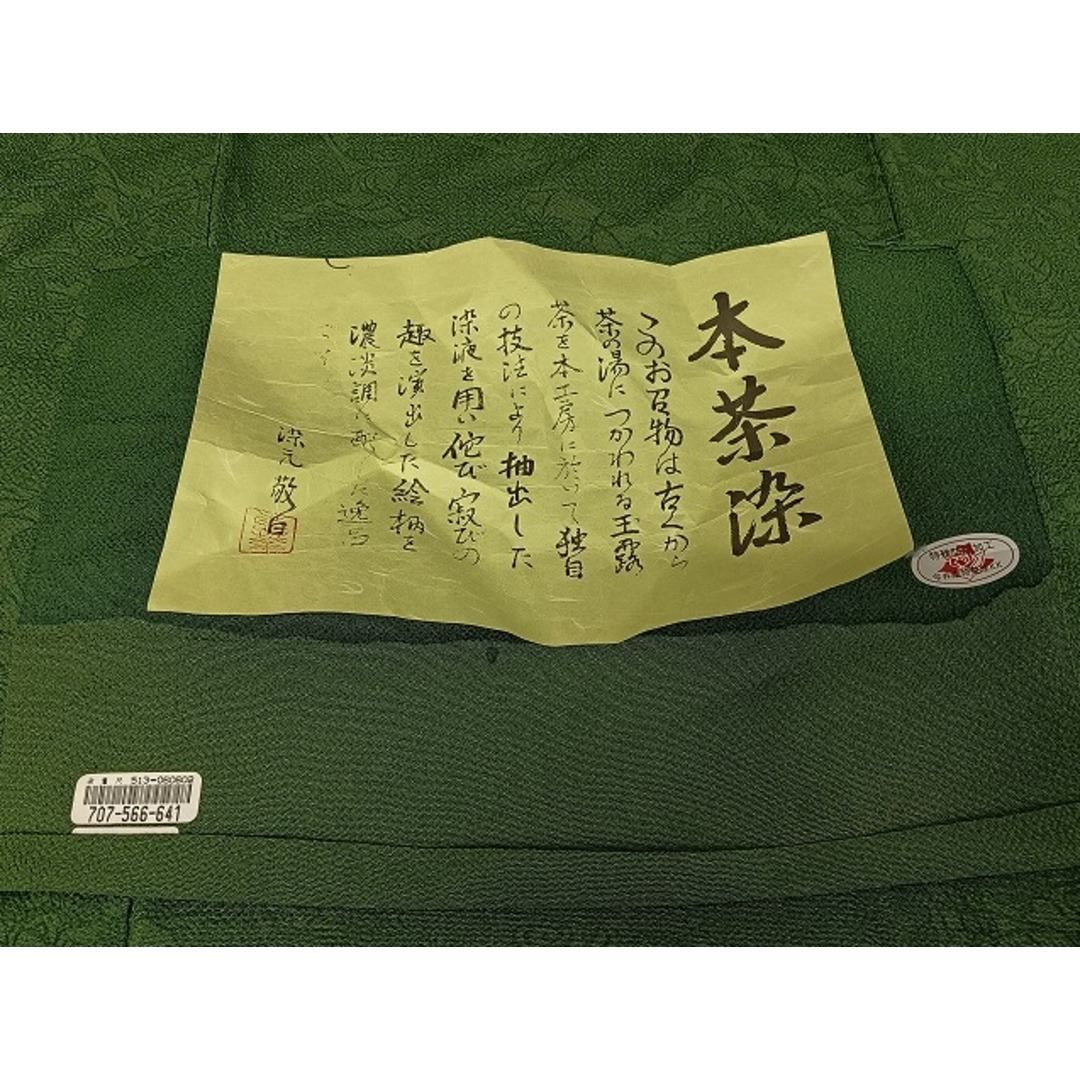 本茶染
このお召物は古くから
茶の湯につかわれる玉露
茶を本工房に於いて独自
の技法により抽出した
染液を用い侘び寂びの
趣を演出した絵柄を
濃淡調に配した逸品
染元敬白
513-080802
707-566-641